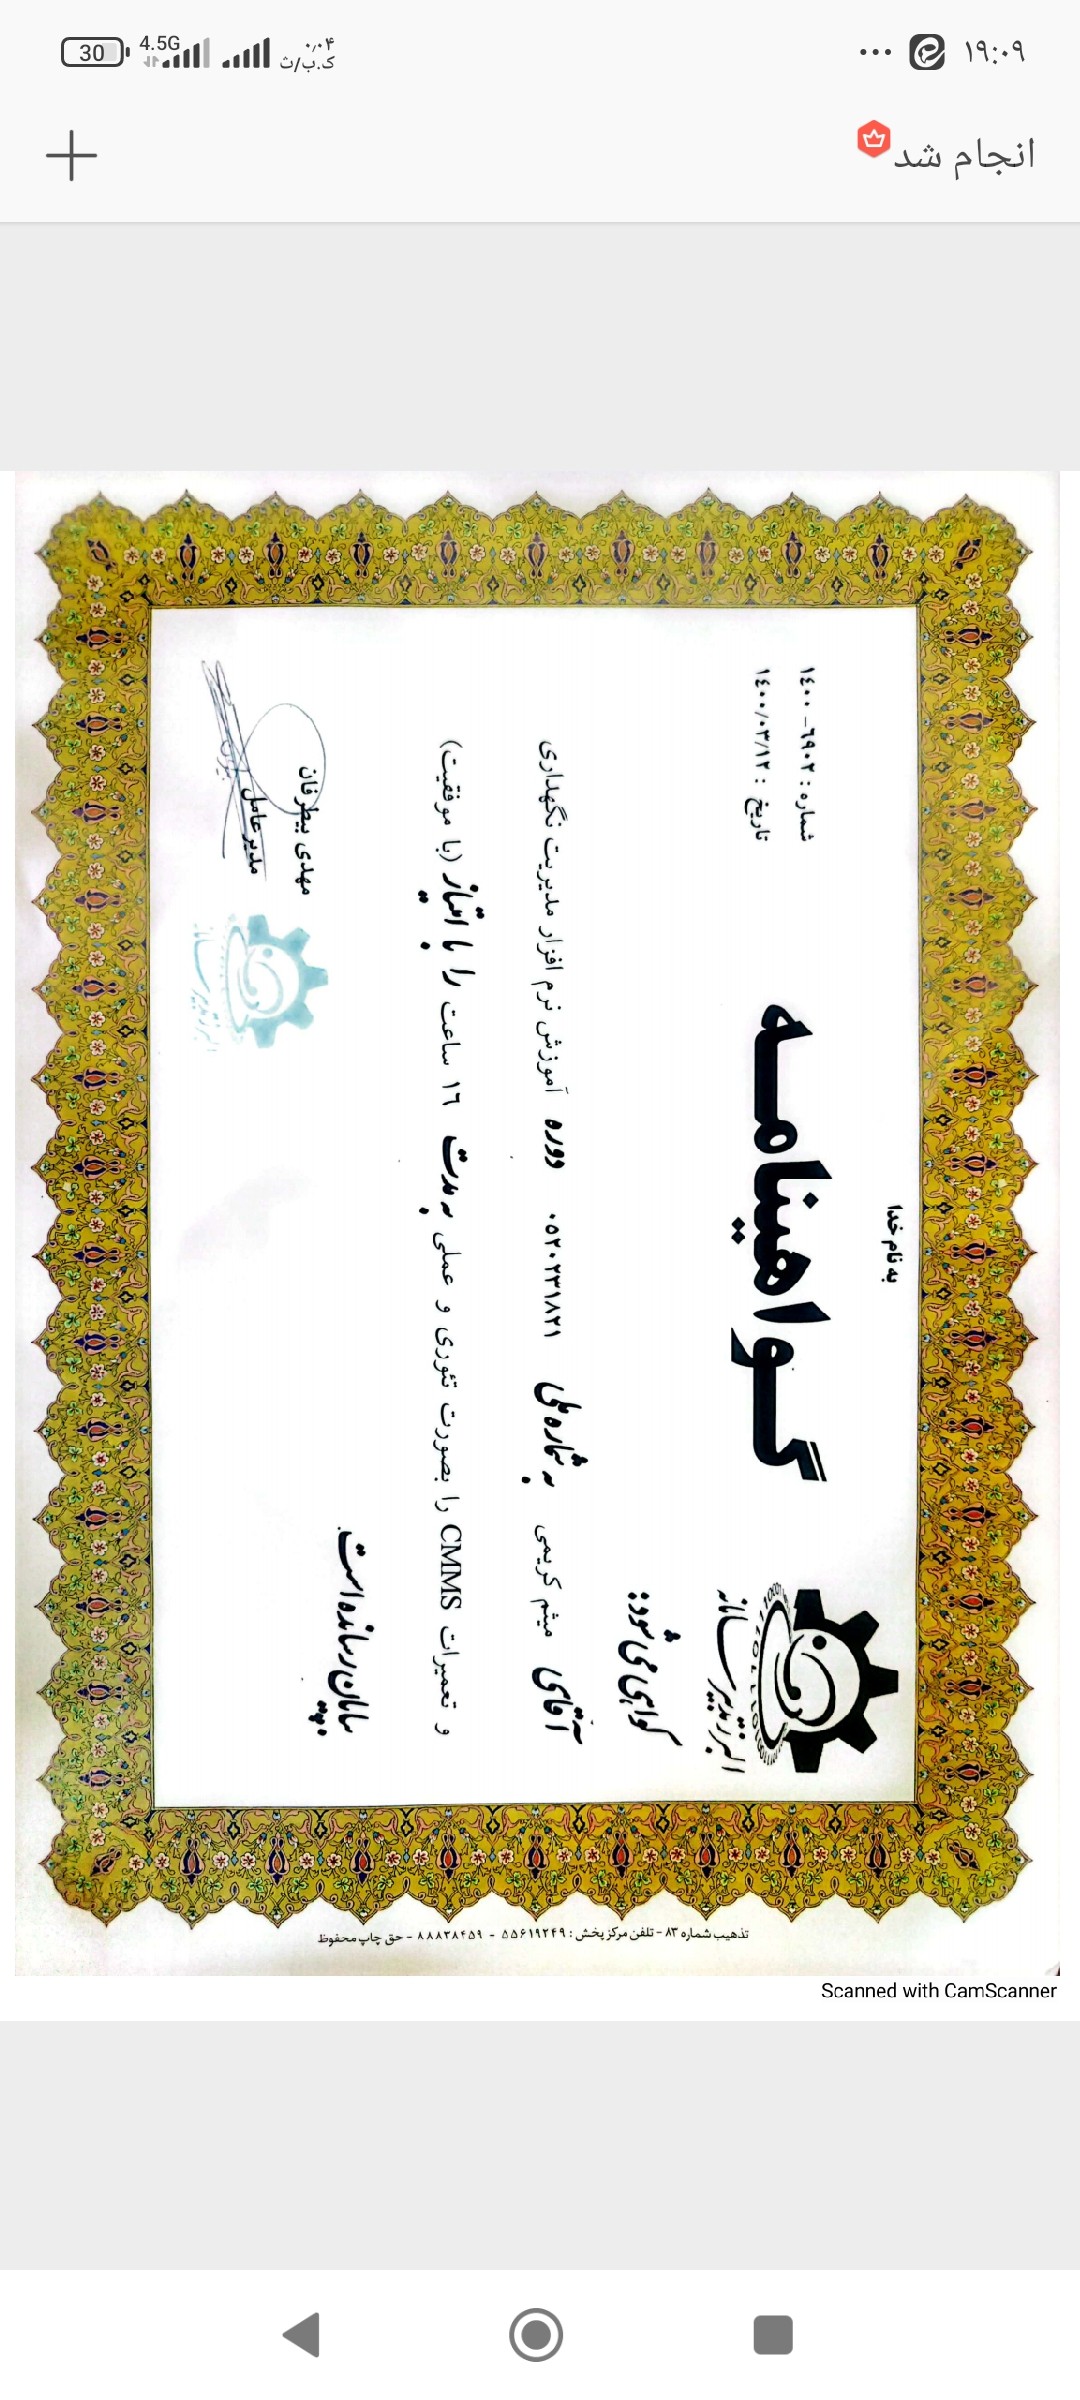 ۱۹:۰۹
۰/۰۴
ک.ب/ث
4.5G
30
انجام شد
به نام خدا
گواهینامه
شماره : ۶۹۰۲- ۱٤۰۰
تاریخ : ۱٤۰۰/۰۳/۱۲
البرز تدبیر سامانه
گواهی می شود:
آقای میثم کریمی به شماره ملی ۰۵۲۰۲۳۱۸۲۱ دوره آموزش نرم افزار مدیریت نگهداری
و تعمیرات CMMS را بصورت تئوری و عملی به مدت ۱٦ ساعت را با امتیاز (با موفقیت)
بپایان رسانده است.
مهدی بیطرفان
مدیر عامل
تذهیب شماره ۸۳ - تلفن مرکز پخش : ۵۵۶۱۹۲۴۹ - ۸۸۸۲۸۴۵۹ - حق چاپ محفوظ
Scanned with CamScanner